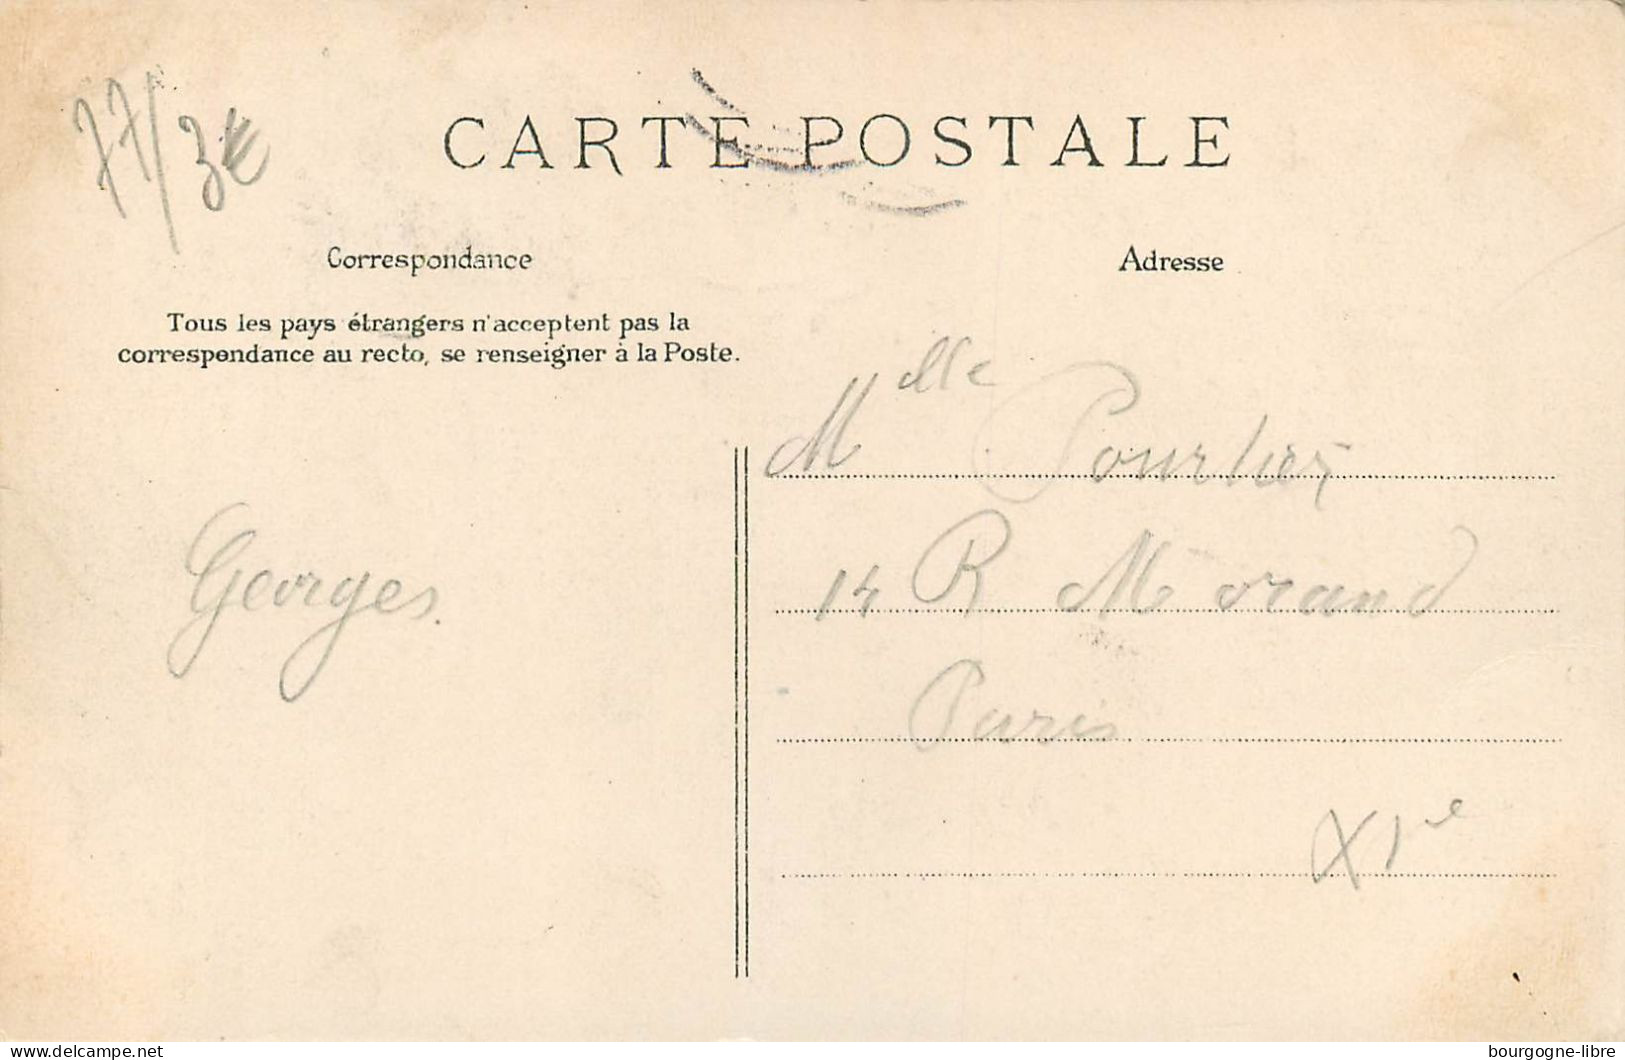 77/3€
CARTE POSTALE
Correspondance
Adresse
Tous les pays étrangers n'acceptent pas la
correspondance au recto, se renseigner à la Poste.
Mlle
14 R Morand
Paris
XIe
Georges
www.delcampe.net
bourgogne-libre